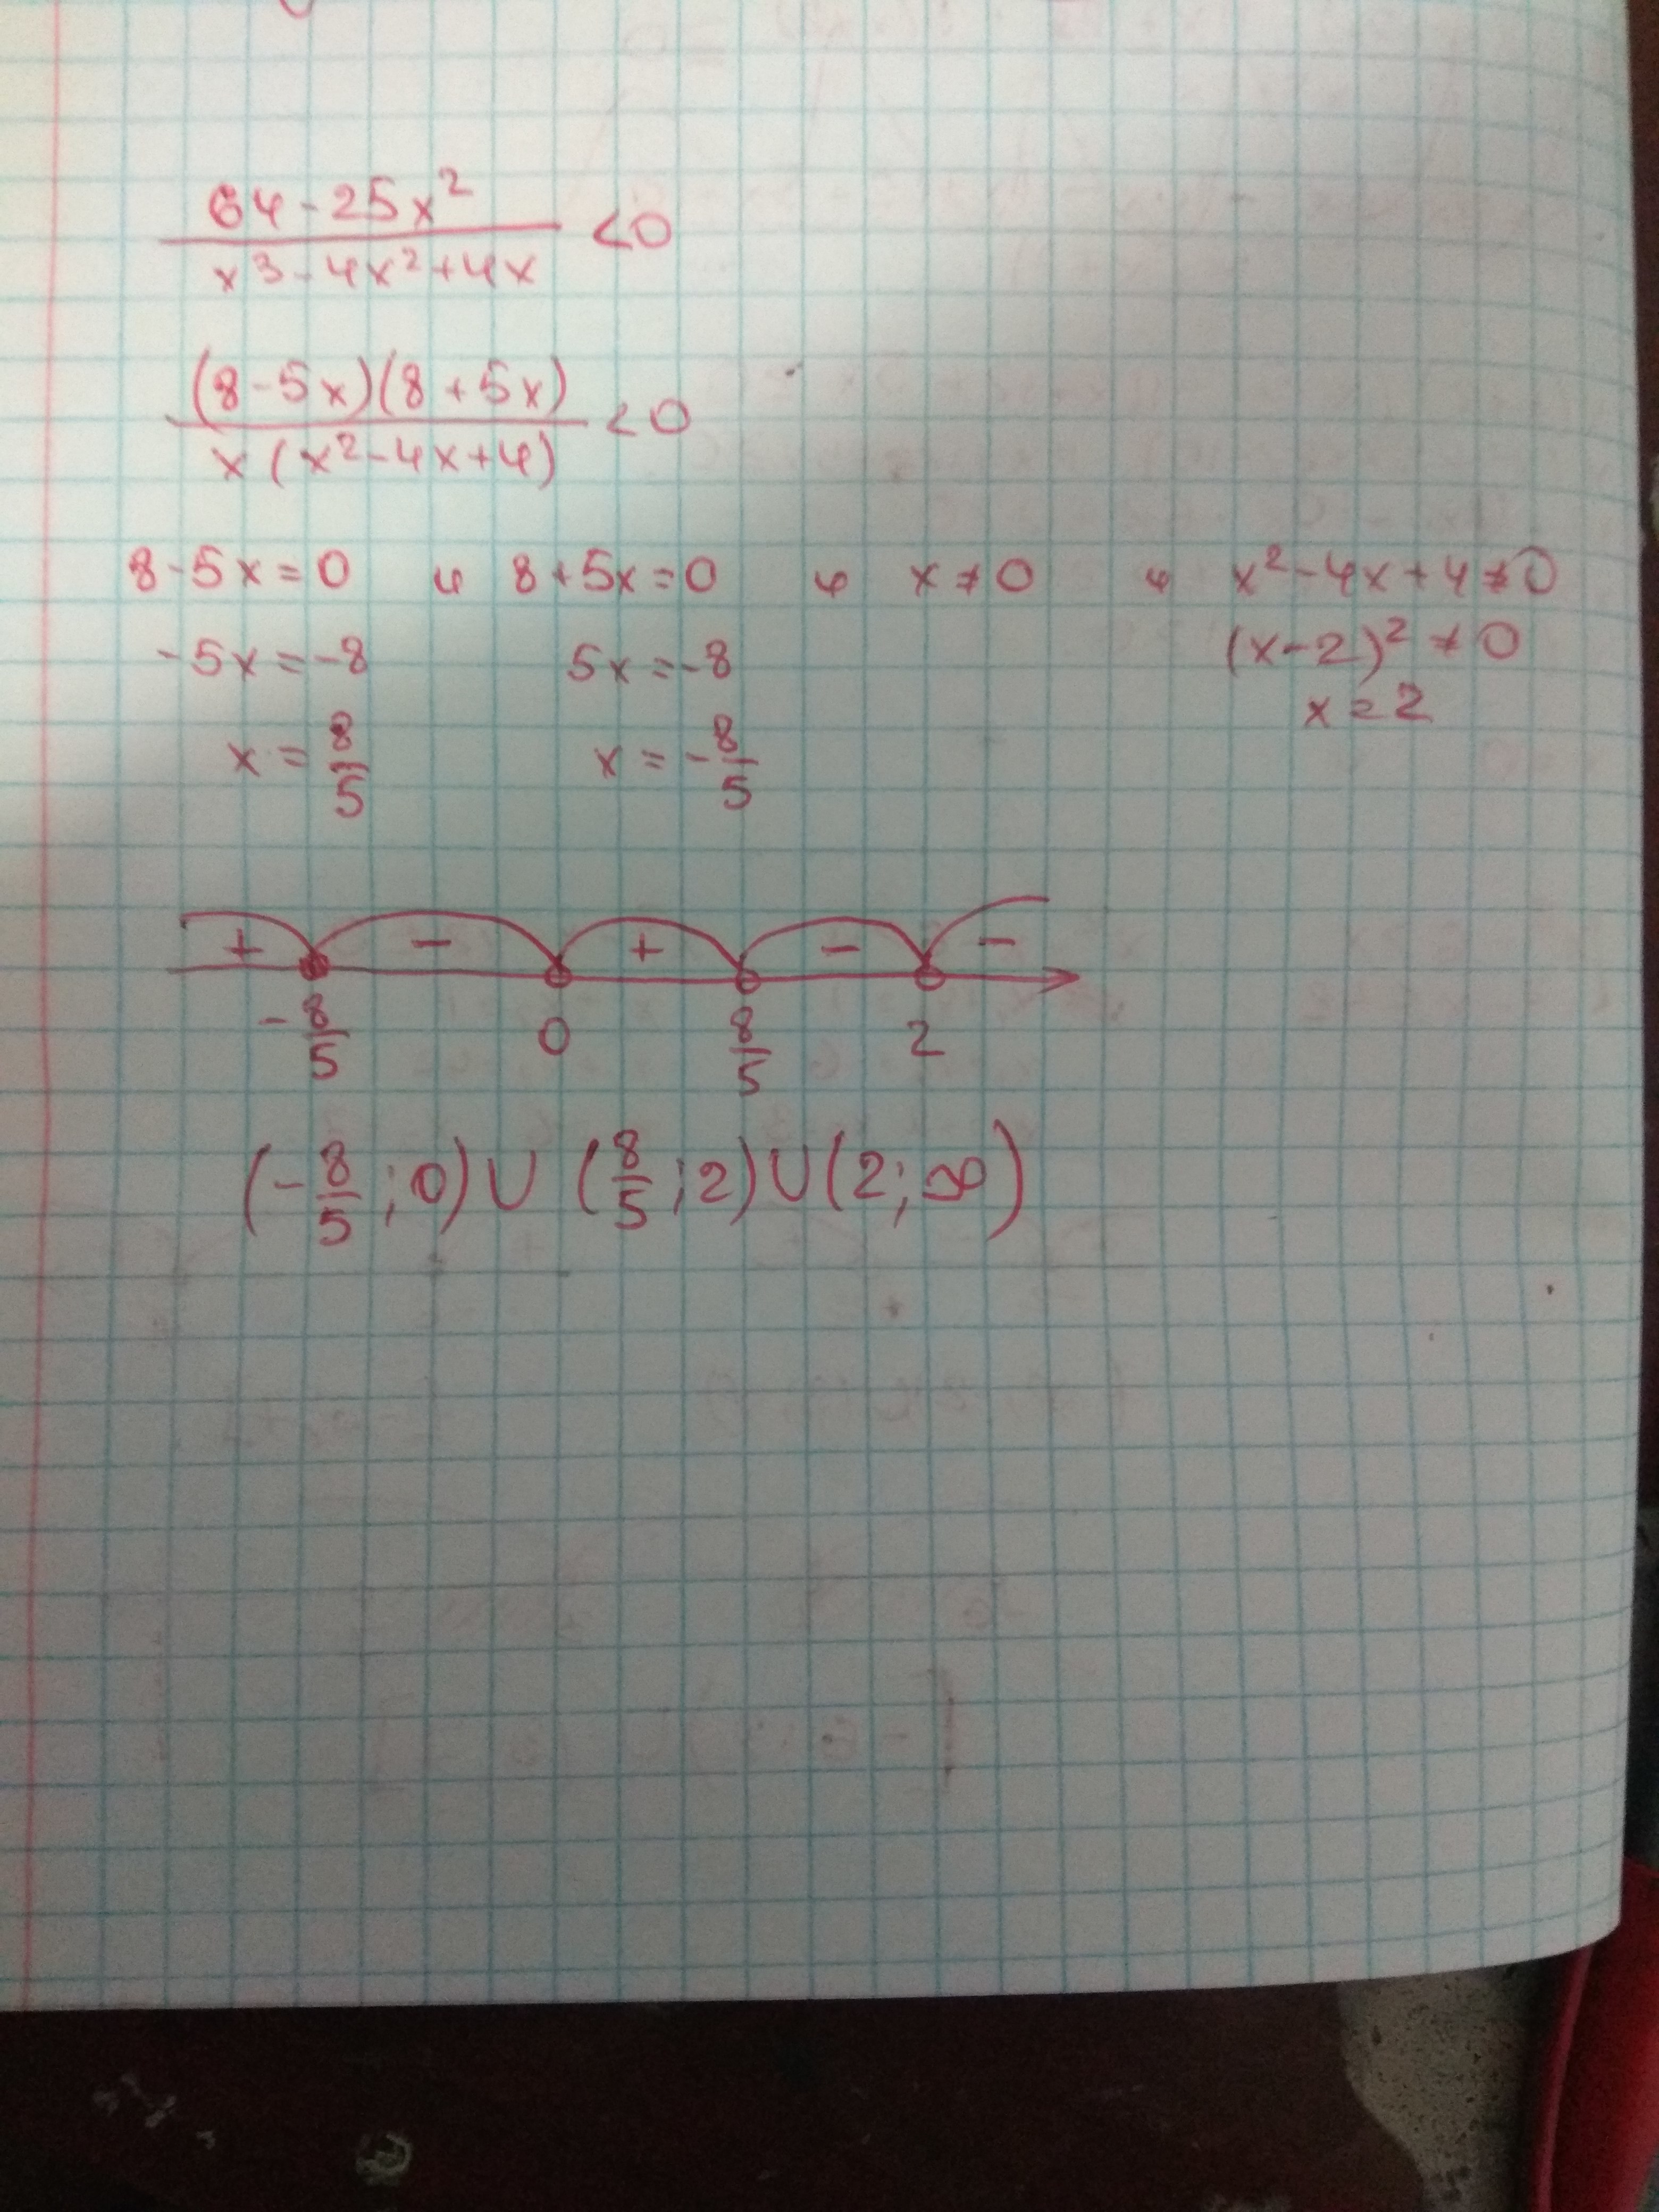 64-25x²
x³-4x²+4x <0
(8-5x)(8+5x)
x(x²-4x+4) <0
8-5x=0 и 8+5x=0 и x≠0 и x²-4x+4≠0
-5x=-8 5x=-8 (x-2)²≠0
x=8/5 x=-8/5 x=2
+ - + - -
-8/5 0 8/5 2
(-8/5;0)∪(8/5;2)∪(2;∞)